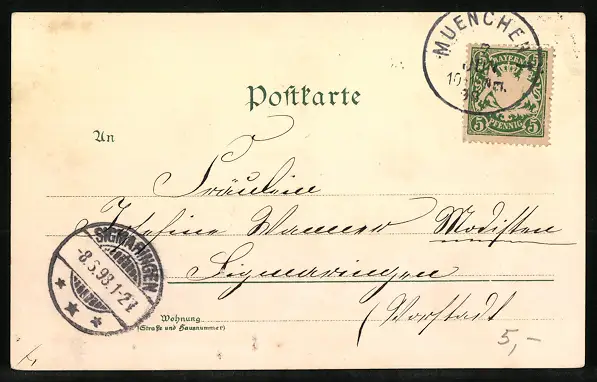 MUENCHEN
BAYERN
5 5
PFENNIG
Postkarte
An
Fräulein
Josefine Wanner Modisten
Sigmaringen
(Vorstadt
SIGMARINGEN
-8.6.98.1-2N
Wohnung
(Straße und Hausnummer)
5,-